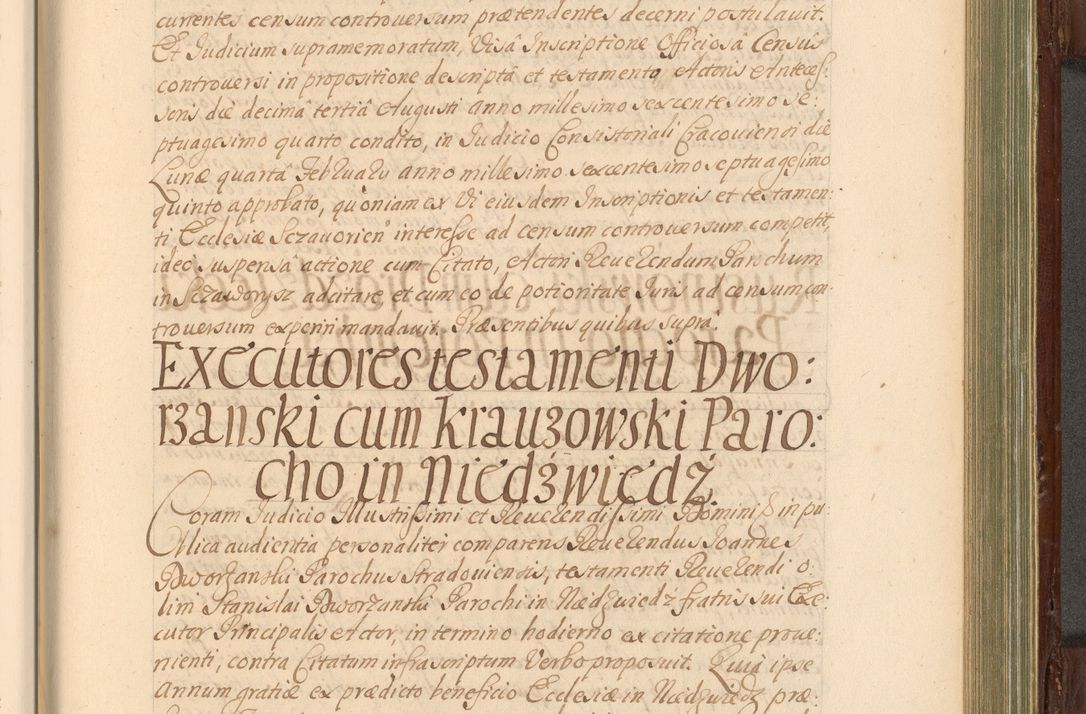 currentes censum controversum prætendentes decerni postulavit.
Et Judicium supramemoratum, Visâ Inscriptione Officiosâ Censûs
controversi in propositione descriptâ et testamento Actoris Anteces:
soris die decima tertiâ Augusti anno millesimo sexcentesimo se:
ptuagesimo quarto condito, in Judicio Consistoriali Cracoviensi die
Lunæ quartâ Februarii anno millesimo sexcentesimo septuagesimo
quinto approbato, quoniam ex Vi eiusdem Inscriptionis et testamen:
ti Ecclesiæ Sczavorien' interesse ad censum controversum competit,
ideo suspensâ actione cum Citato, Actori Reverendum Parochum
in Sczaworysz adcitare, et cum eo de potioritate Juris ad censum con:
troversum experiri mandavit. Præsentibus quibus supra.
Executores testamenti Dwo:
rzanski cum Krauzowski Paro:
cho in Niedźwiedź.
Coram Judicio Illustrissimi et Reverendissimi Domini in pu:
blica audientia personaliter comparens Reverendus Joannes
Dworzanski Parochus Stradoviensis, testamenti Reverendi o:
lim Stanislai Dworzanski Parochi in Niedzwiedz fratris sui Exe:
cutor Principalis Actor, in termino hodierno ex citatione prove:
nienti, contra Citatum infrascriptum Verbo proposuit. Quia ipse
Annum gratiæ ex prædicto beneficio Ecclesiæ in Niedzwiedz præ: